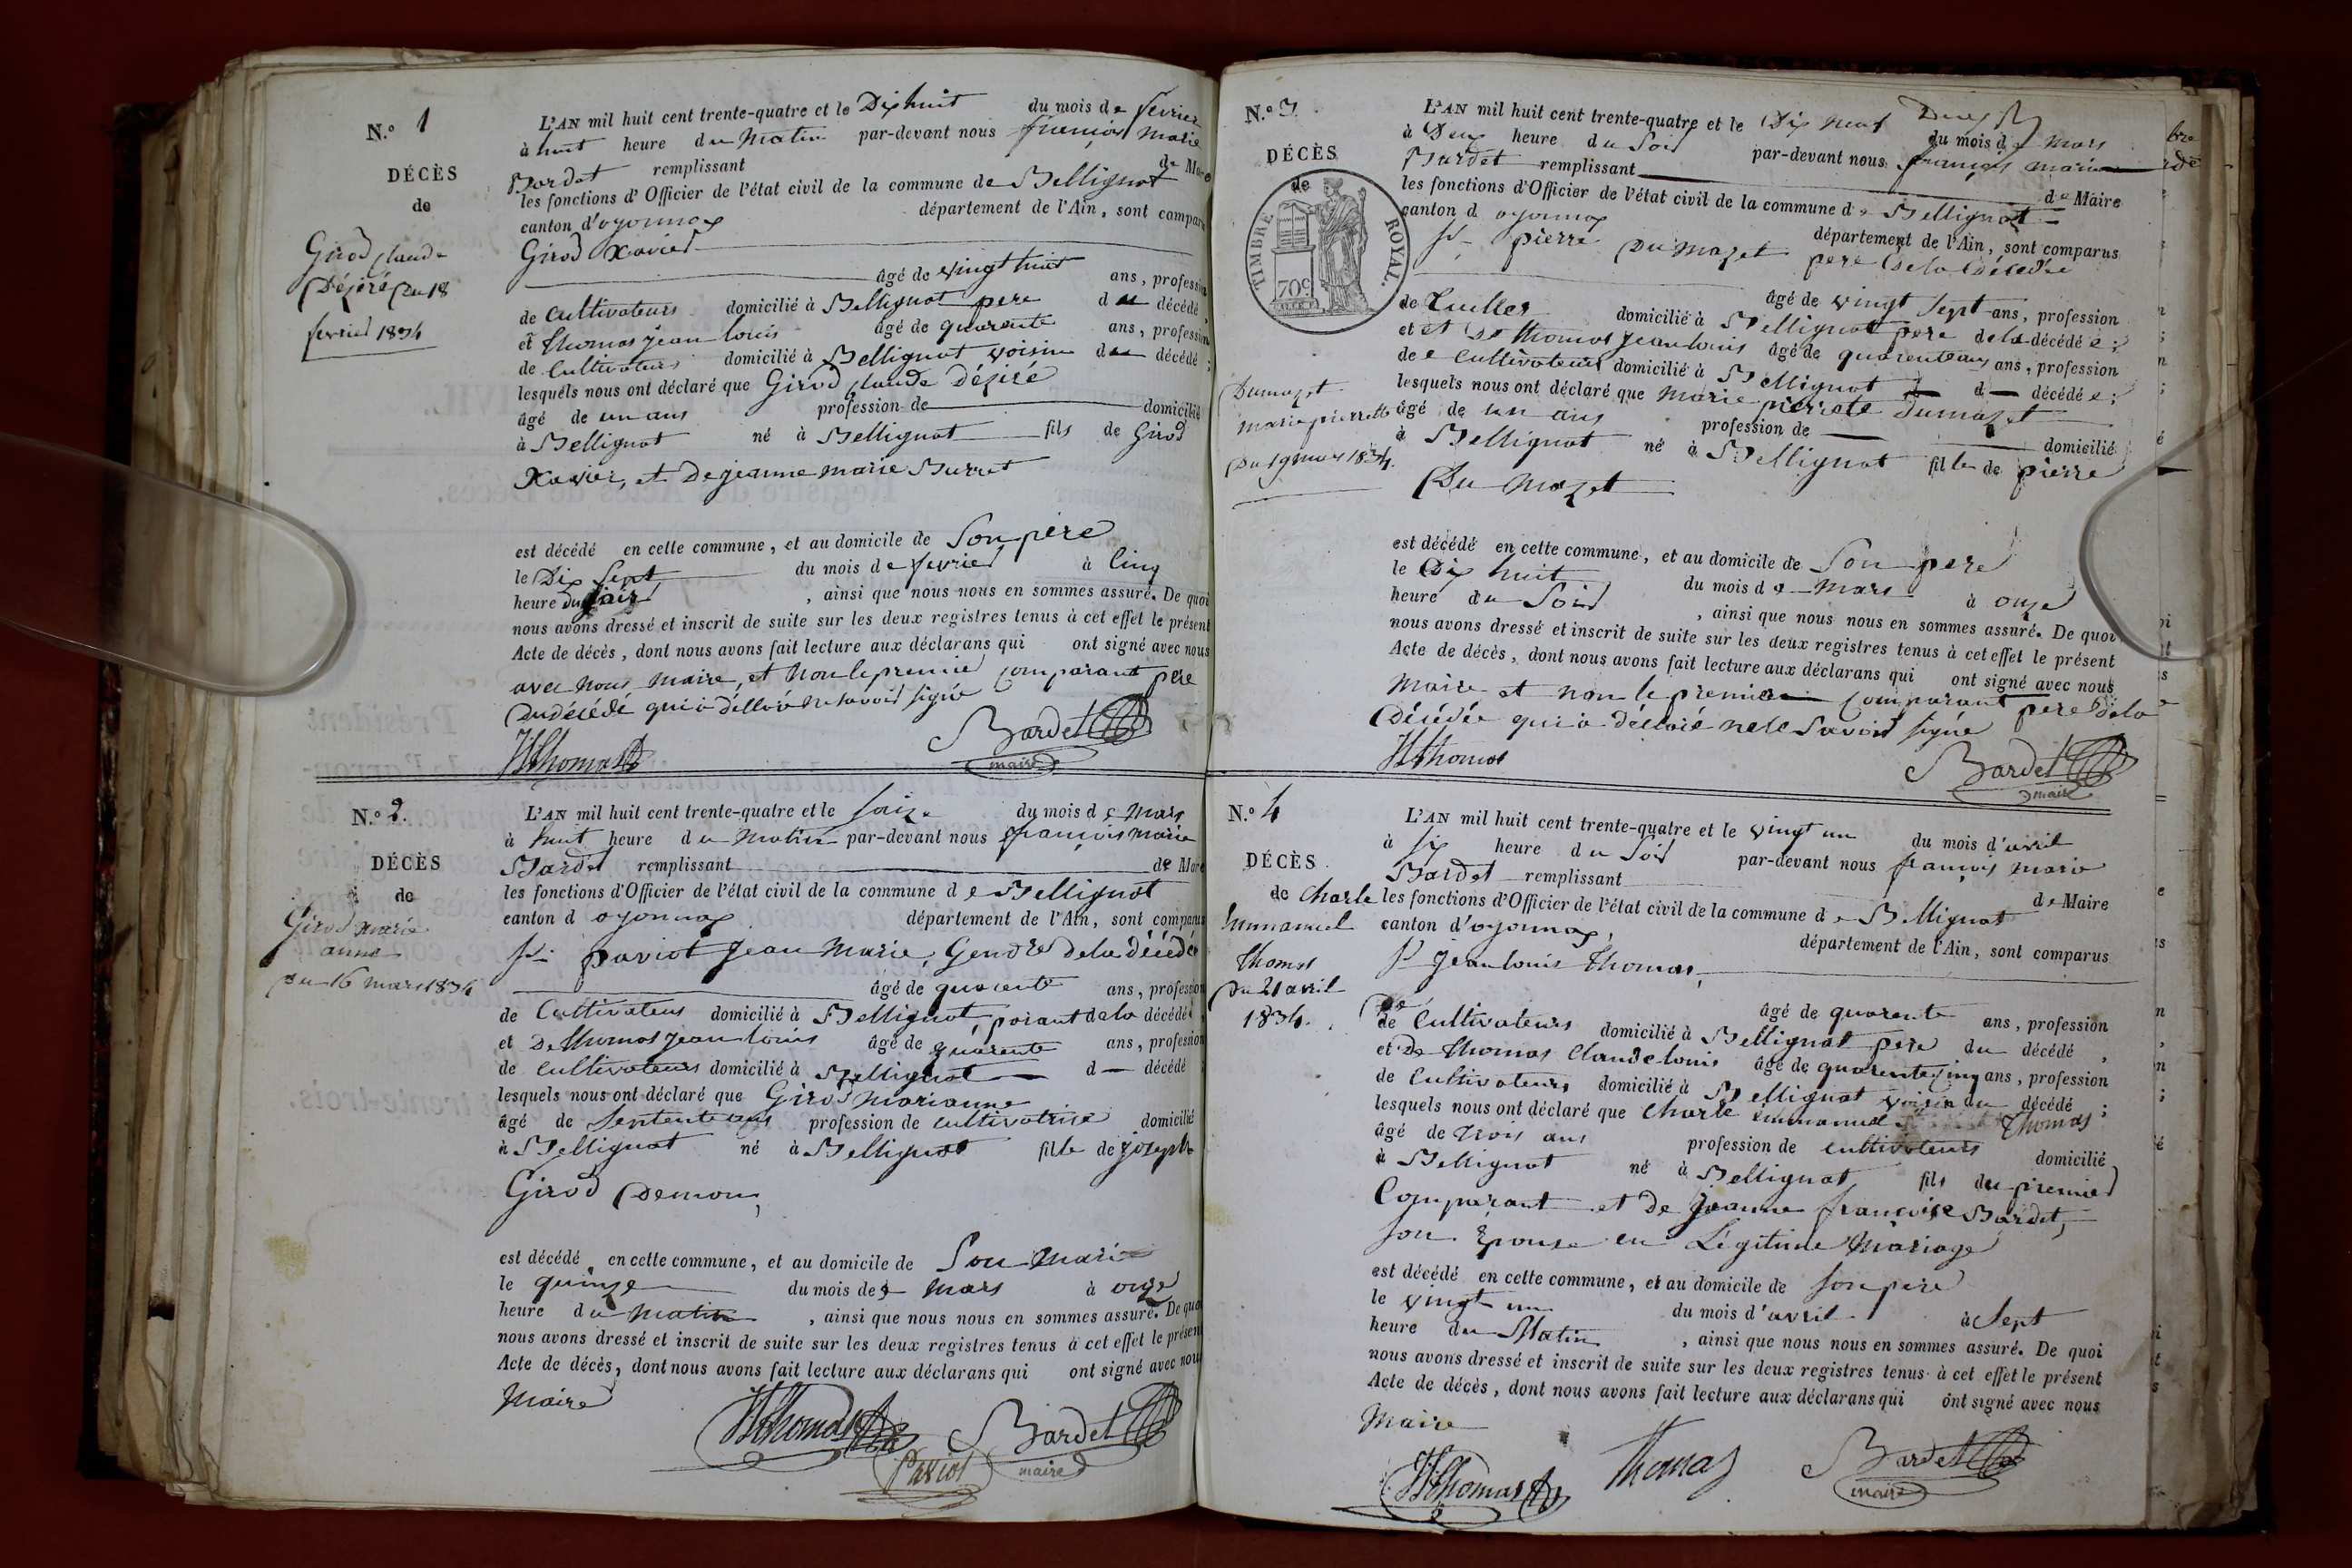 N.º 1
DÉCÈS
de
Girod Claude
Déziré Du 18
fevrier 1834
L'AN mil huit cent trente-quatre et le Dix huit du mois de fevrier
à huit heure du Matin par-devant nous françois Marie
Bardet remplissant de Maire
les fonctions d'Officier de l'état civil de la commune de Bellignat
canton d'oyonnax département de l'Ain, sont comparus
Girod Xavier
âgé de vingt huit ans, profession
de Cultivateurs domicilié à Bellignat pere du décédé,
et thomas jean louis âgé de quarente ans, profession
de Cultivateurs domicilié à Bellignat voisin du décédé;
lesquels nous ont déclaré que Girod Claude Déziré
âgé de un ans profession de domicilié
à Bellignat né à Bellignat fils de Girod
Xavier, et De jeanne marie Burret
est décédé en cette commune, et au domicile de Son père
le Dix Sept du mois de fevrier à Cinq
heure du soir, ainsi que nous nous en sommes assuré. De quoi
nous avons dressé et inscrit de suite sur les deux registres tenus à cet effet le présent
Acte de décès, dont nous avons fait lecture aux déclarans qui ont signé avec nous
avec nous maire, et non le premier Comparant pere
Du décédé qui a délaré ne savoir signé
JLthomas Bardet
maire
N.º 2.
DÉCÈS
de
Girod Marie
anne
Du 16 mars 1834
L'AN mil huit cent trente-quatre et le Saize du mois de Mars
à huit heure du Matin par-devant nous françois Marie
Bardet remplissant de Maire
les fonctions d'Officier de l'état civil de la commune de Bellignat
canton d oyonnax département de l'Ain, sont comparus
Sr. paviot Jean Marie, Gendre de la Décédé
âgé de quarente ans, profession
de Cultivateurs domicilié à Bellignat, parant de la décédé
et De thomas Jean louis âgé de quarente ans, profession
de Cultivateurs domicilié à Bellignat d décédé
lesquels nous ont déclaré que Girod Marianne
âgé de Septente ans profession de Cultivatrise domicilié
à Bellignat né à Bellignat fille de joseph
Girod Demon,
est décédé en cette commune, et au domicile de Son Mari
le quinze du mois de Mars à onze
heure du Matin, ainsi que nous nous en sommes assuré. De quoi
nous avons dressé et inscrit de suite sur les deux registres tenus à cet effet le présent
Acte de décès, dont nous avons fait lecture aux déclarans qui ont signé avec nous
Maire
JLthomas Bardet
Paviot maire
N.º 3
DÉCÈS
de
TIMBRE ROYAL.
70c
Dumazet
Marie pierrette
Du 19 mars 1834.
L'AN mil huit cent trente-quatre et le Dix neuf du mois de Mars
à Deux heure du Soir par-devant nous françois Marie
Bardet remplissant de Maire
les fonctions d'Officier de l'état civil de la commune de Bellignat
canton d oyonnax département de l'Ain, sont comparus
Sr. pierre Du Mazet pere De la Décédée
âgé de vingt Sept ans, profession
de Tuilier domicilié à Bellignat pere de la décédée;
et et De thomas Jean louis âgé de quarente ans ans, profession
de Cultivateurs domicilié à Bellignat d décédée;
lesquels nous ont déclaré que Marie pierrete dumazet
âgé de un ans profession de domicilié
à Bellignat né à Bellignat fille de pierre
Du Mazet
est décédé en cette commune, et au domicile de Son pere
le Dix huit du mois de Mars à onze
heure du Soir, ainsi que nous nous en sommes assuré. De quoi
nous avons dressé et inscrit de suite sur les deux registres tenus à cet effet le présent
Acte de décès, dont nous avons fait lecture aux déclarans qui ont signé avec nous
Maire et non le premier Comparant pere de la
Décédée qui a délaré ne le Savoir signé
JLthomas Bardet
maire
N.º 4
DÉCÈS
de Charle
Emmanuel
Thomas
Du 21 avril
1834.
L'AN mil huit cent trente-quatre et le vingt un du mois d'avril
à six heure du Soir par-devant nous françois Marie
Bardet remplissant de Maire
les fonctions d'Officier de l'état civil de la commune de Bellignat
canton d'oyonnax, département de l'Ain, sont comparus
Sr Jean louis Thomas,
âgé de quarente ans, profession
de Cultivateurs domicilié à Bellignat pere du décédé,
et De Thomas Claude louis âgé de quarente Cinq ans, profession
de Cultivateurs domicilié à Bellignat voisin du décédé;
lesquels nous ont déclaré que Charle emmanuel Thomas
âgé de trois ans profession de Cultivateurs domicilié
à Bellignat né à Bellignat fils du premier
Comparant et de Jeanne françoise Bardet,
Son Epouse en Légitime Mariage
est décédé en cette commune, et au domicile de Son pere
le vingt un du mois d'avril à Sept
heure du Matin, ainsi que nous nous en sommes assuré. De quoi
nous avons dressé et inscrit de suite sur les deux registres tenus à cet effet le présent
Acte de décès, dont nous avons fait lecture aux déclarans qui ont signé avec nous
Maire
JLthomas thomas Bardet
maire